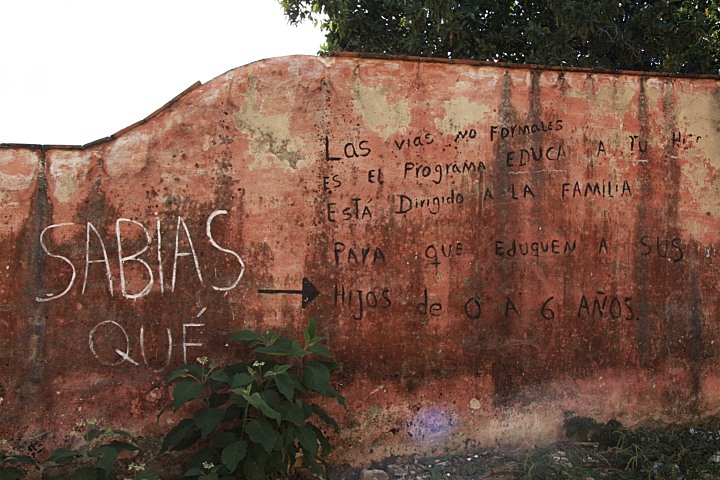 SABIAS
QUÉ
Las vias no Formales
es el Programa EDUCA A TU
ESTÁ Dirigido A LA FAMILIA
PARA QUE EDUQUEN A SUS
HIJOS de 0 A 6 AÑOS.